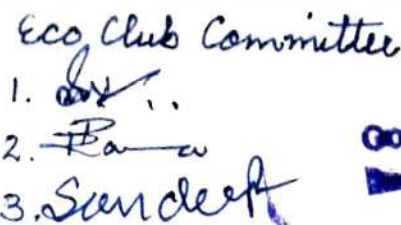 Eco Club Committee
1.
2. Rama
3. Sundeep